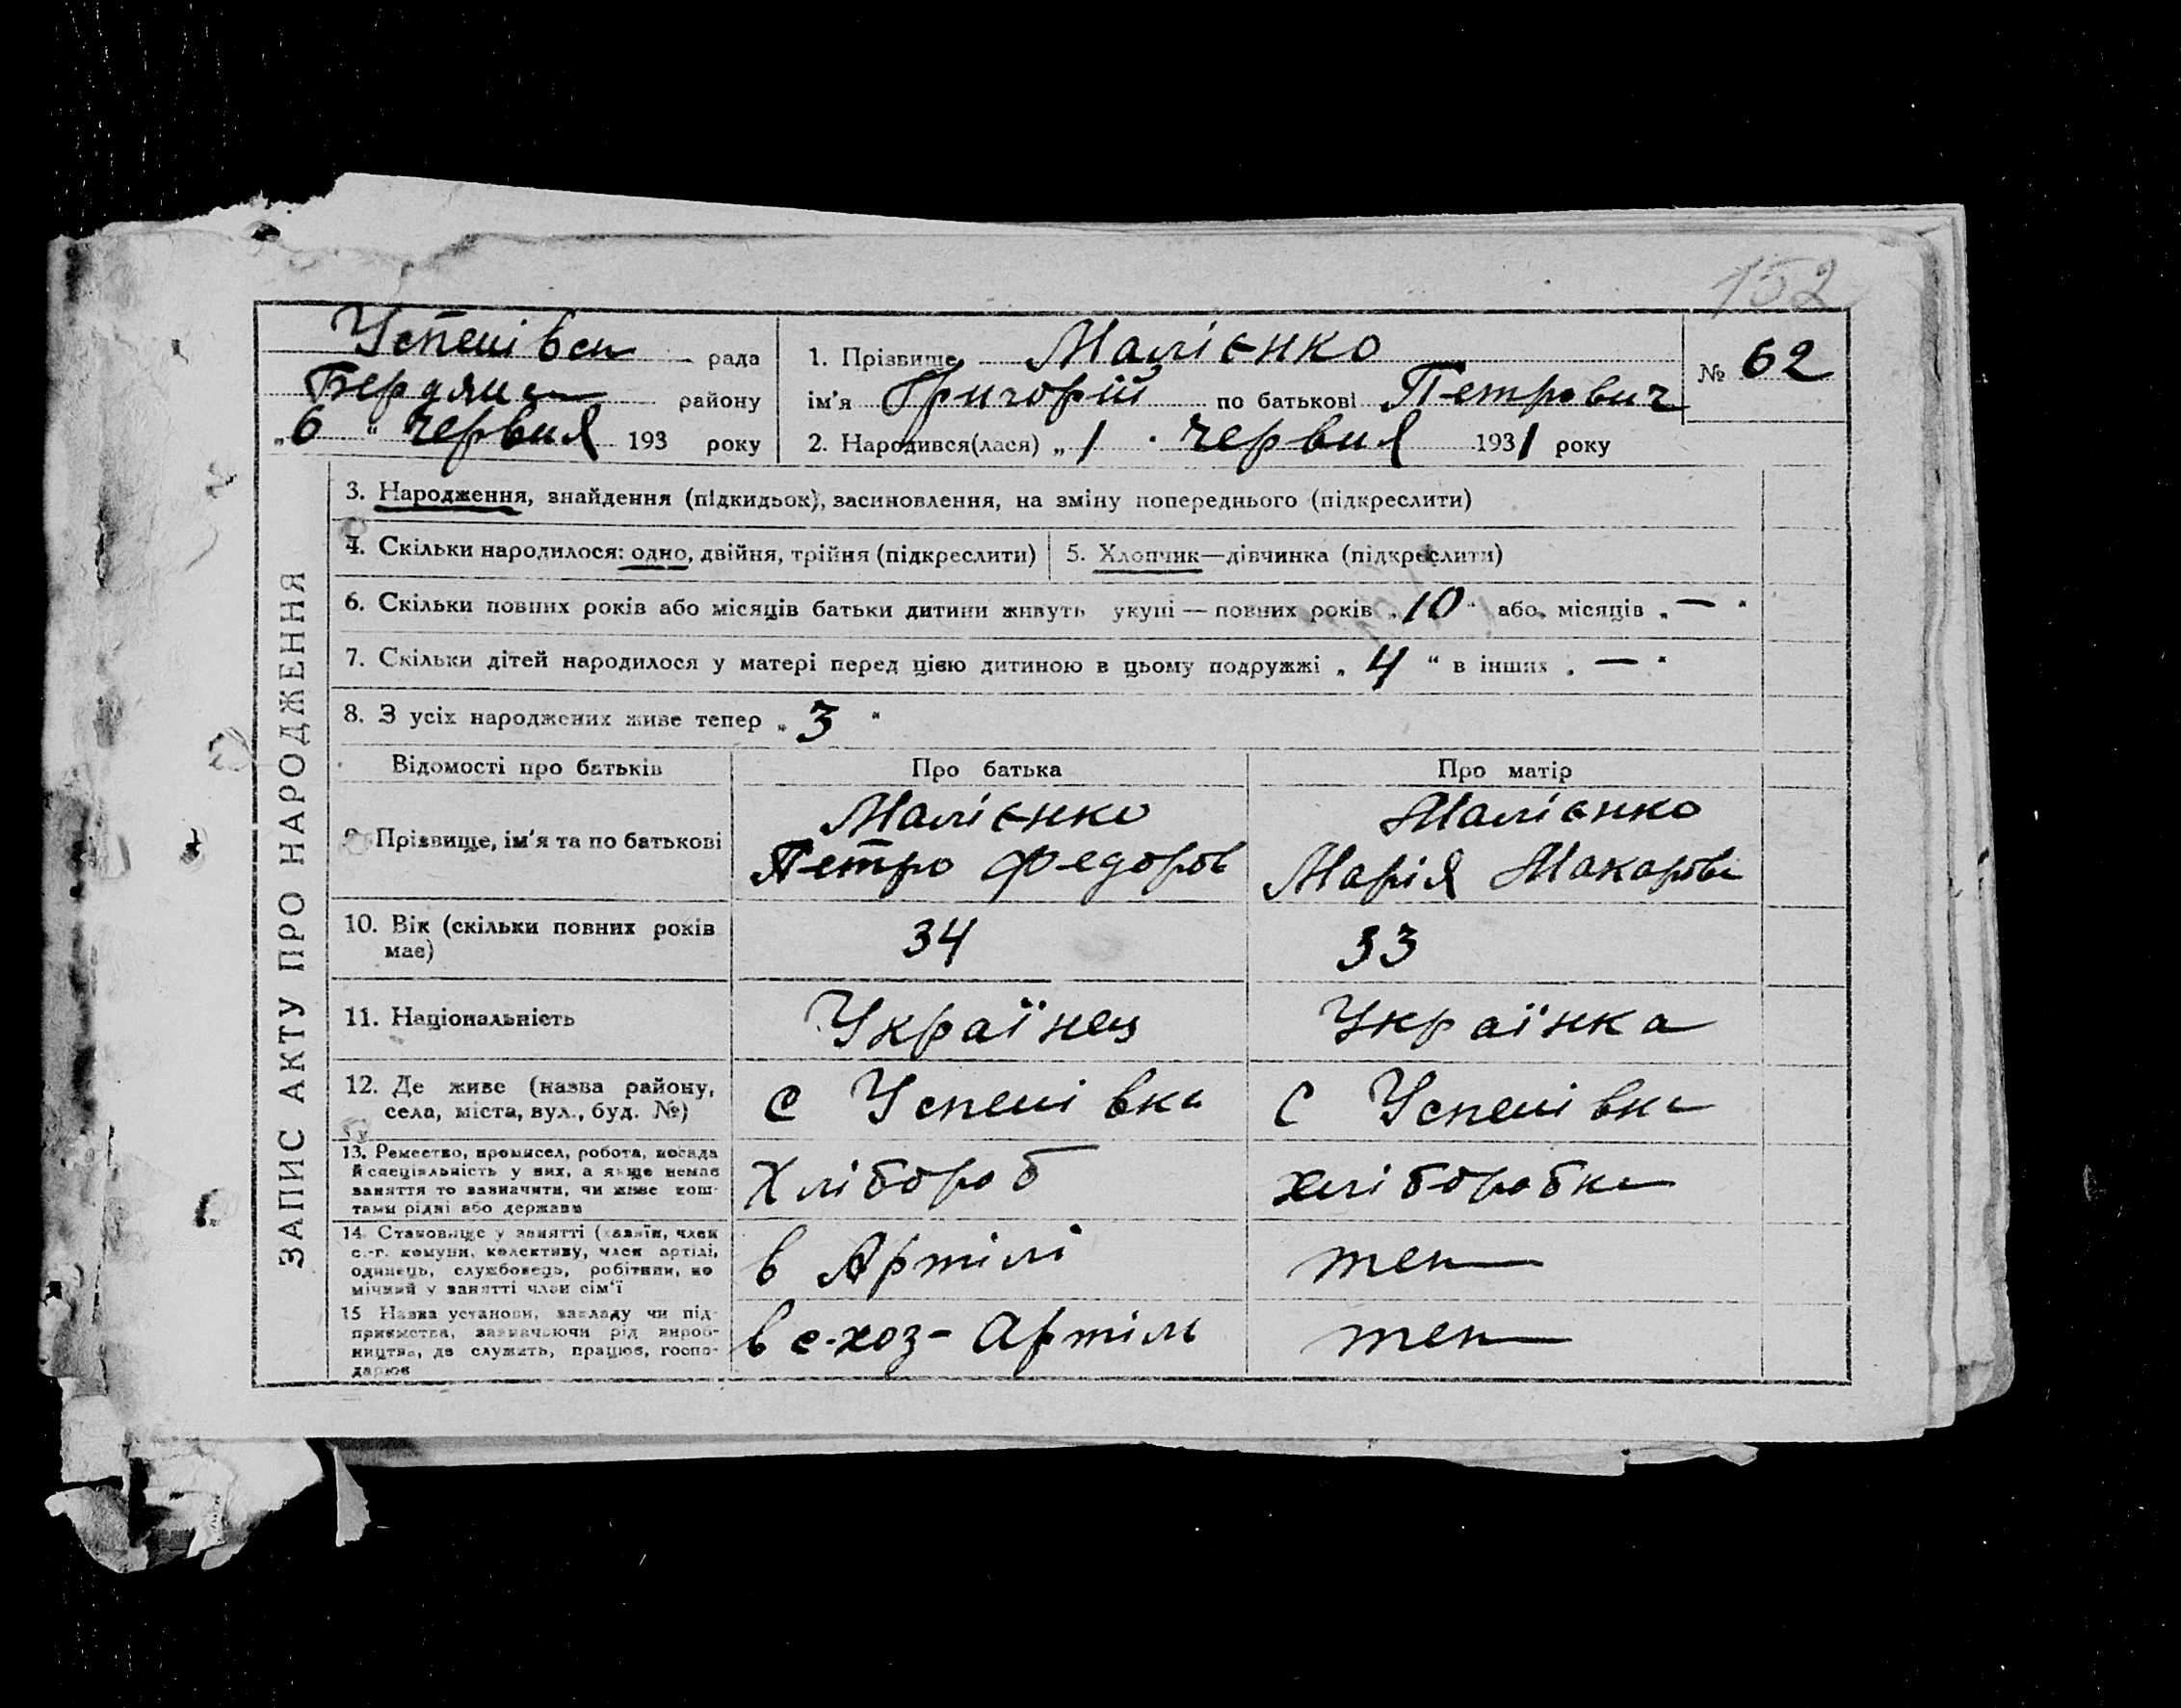 152
Успенівськ рада
Бердянськ району
„6“ червня 193 року
1. Прізвище Малієнко
ім'я Григорій по батькові Петрович
2. Народився(лася) „1 червня 1931 року
№ 62
ЗАПИС АКТУ ПРО НАРОДЖЕННЯ
3. Народження, знайдення (підкидьок), засиновлення, на зміну попереднього (підкреслити)
4. Скільки народилося: одно, двійня, трійня (підкреслити)
5. Хлопчик—дівчинка (підкреслити)
6. Скільки повних років або місяців батьки дитини живуть укупі — повних років „10“ або місяців „—“
7. Скільки дітей народилося у матері перед цією дитиною в цьому подружжі „4“ в інших „—“
8. З усіх народжених живе тепер „3“
Відомості про батьків
Про батька
Про матір
9. Прізвище, ім'я та по батькові
Малієнко
Петро Федоров
Малієнко
Марія Макарові
10. Вік (скільки повних років
має)
34
33
11. Національність
Українец
Українка
12. Де живе (назва району,
села, міста, вул., буд. №)
с Успенівка
с Успенівка
13. Ремество, промисел, робота, посада
й спеціяльність у них, а якще немає
заняття то зазначити, чи живе кош-
тами рідні або держави
Хлібороб
хліборобка
14. Становище у занятті (хазяїн, член
с.-г. комуни, колективу, член артілі,
одинець, службовець, робітник, по
мічний у занятті член сім'ї
в Артілі
теж
15 Назва установи, закладу чи під-
приємства, зазначаючи рід вироб-
ництва, де служить, працює, госпо-
дарює
в с-хоз- Артіль
теж